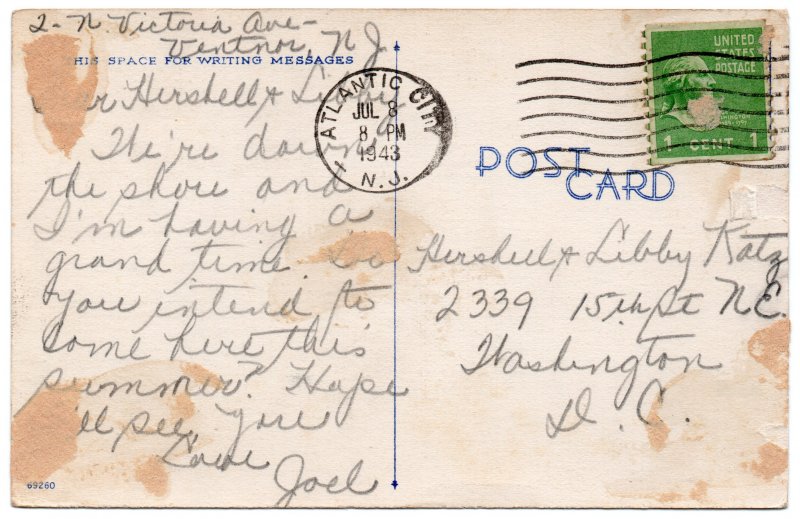 2- N. Victoria Ave-
Ventnor, N J.
THIS SPACE FOR WRITING MESSAGES
Hershell & Libby,
We're down
the shore and
I'm having a
grand time. Do
you intend to
come here this
summer? Hope
I'll see you
Love
Joel
69260
ATLANTIC CITY
JUL 8
8 PM
1943
N.J.
UNITED
STATES
POSTAGE
1 CENT 1
POST
CARD
Hershell & Libby Katz
2339 15th St N.E.
Washington
D. C.